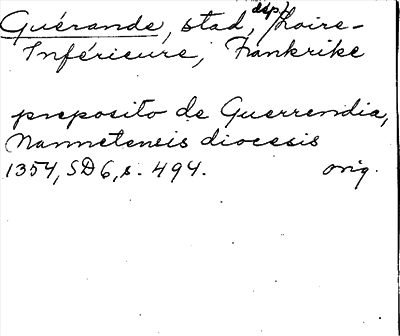 Guérande, stad, dep. Loire-
Inférieure, Frankrike
preposito de Guerrendia,
Nannetensis diocesis
1354, SD 6, s. 494. orig.